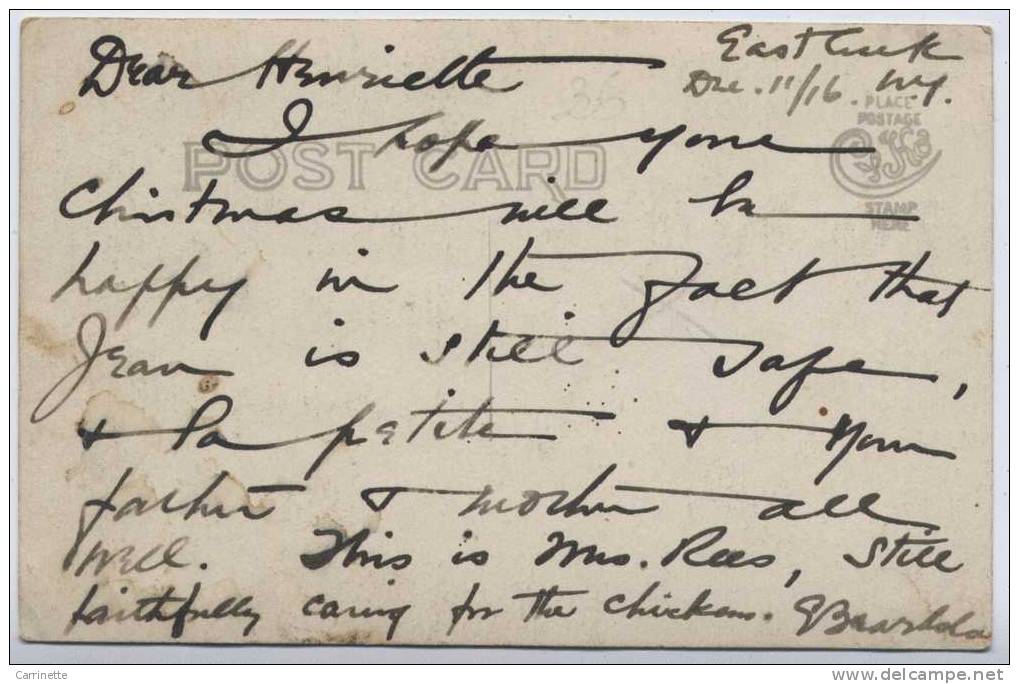 East Creek
Dec. 11/16. N.Y.
Dear Henriette
PLACE
POSTAGE
STAMP
HERE
POST CARD
I hope your
Christmas will be
happy in the fact that
Jean is still safe,
& la petite & your
father & mother all
well. This is Mrs. Rees, still
faithfully caring for the chickens.
Carrinette
delcampe.net